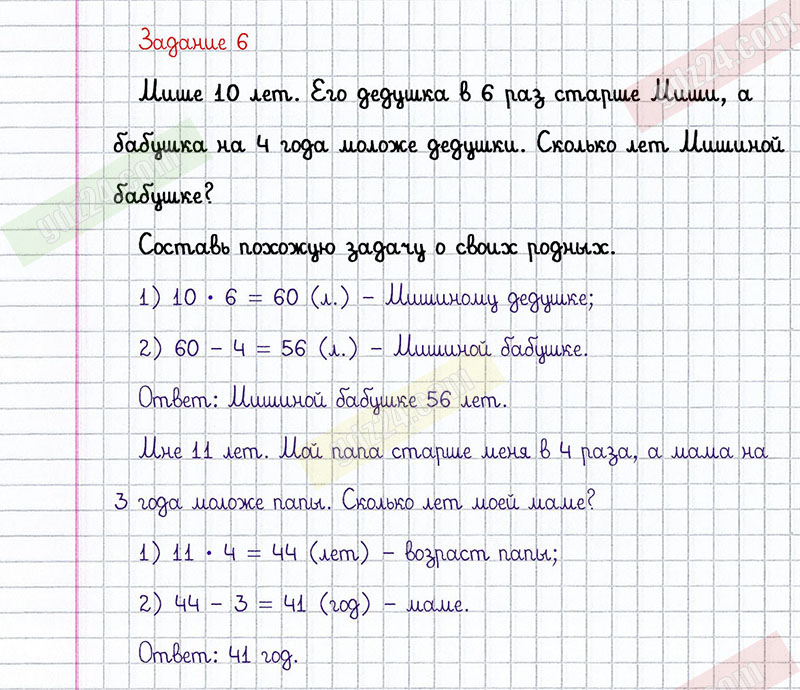 Задание 6
Мише 10 лет. Его дедушка в 6 раз старше Миши, а
бабушка на 4 года моложе дедушки. Сколько лет Мишиной
бабушке?
Составь похожую задачу о своих родных.
1) 10 · 6 = 60 (л.) – Мишиному дедушке;
2) 60 – 4 = 56 (л.) – Мишиной бабушке.
Ответ: Мишиной бабушке 56 лет.
Мне 11 лет. Мой папа старше меня в 4 раза, а мама на
3 года моложе папы. Сколько лет моей маме?
1) 11 · 4 = 44 (лет) – возраст папы;
2) 44 – 3 = 41 (год) – маме.
Ответ: 41 год.
gdz24.com
gdz24.com
gdz24.com